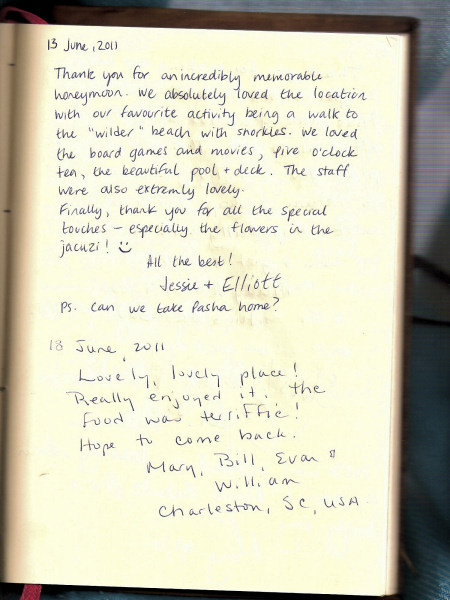 13 June, 2011
Thank you for an incredibly memorable
honeymoon. We absolutely loved the location
with our favourite activity being a walk to
the "wilder" beach with snorkles. We loved
the board games and movies, five o'clock
tea, the beautiful pool + deck. The staff
were also extremly lovely.
Finally, thank you for all the special
touches – especially the flowers in the
jacuzi! ☺
All the best!
Jessie + Elliott
Ps. Can we take Pasha home?
18 June, 2011
Lovely, lovely place!
Really enjoyed it. the
food was terriffic!
Hope to come back.
Mary, Bill, Evan &
William
Charleston, SC, USA